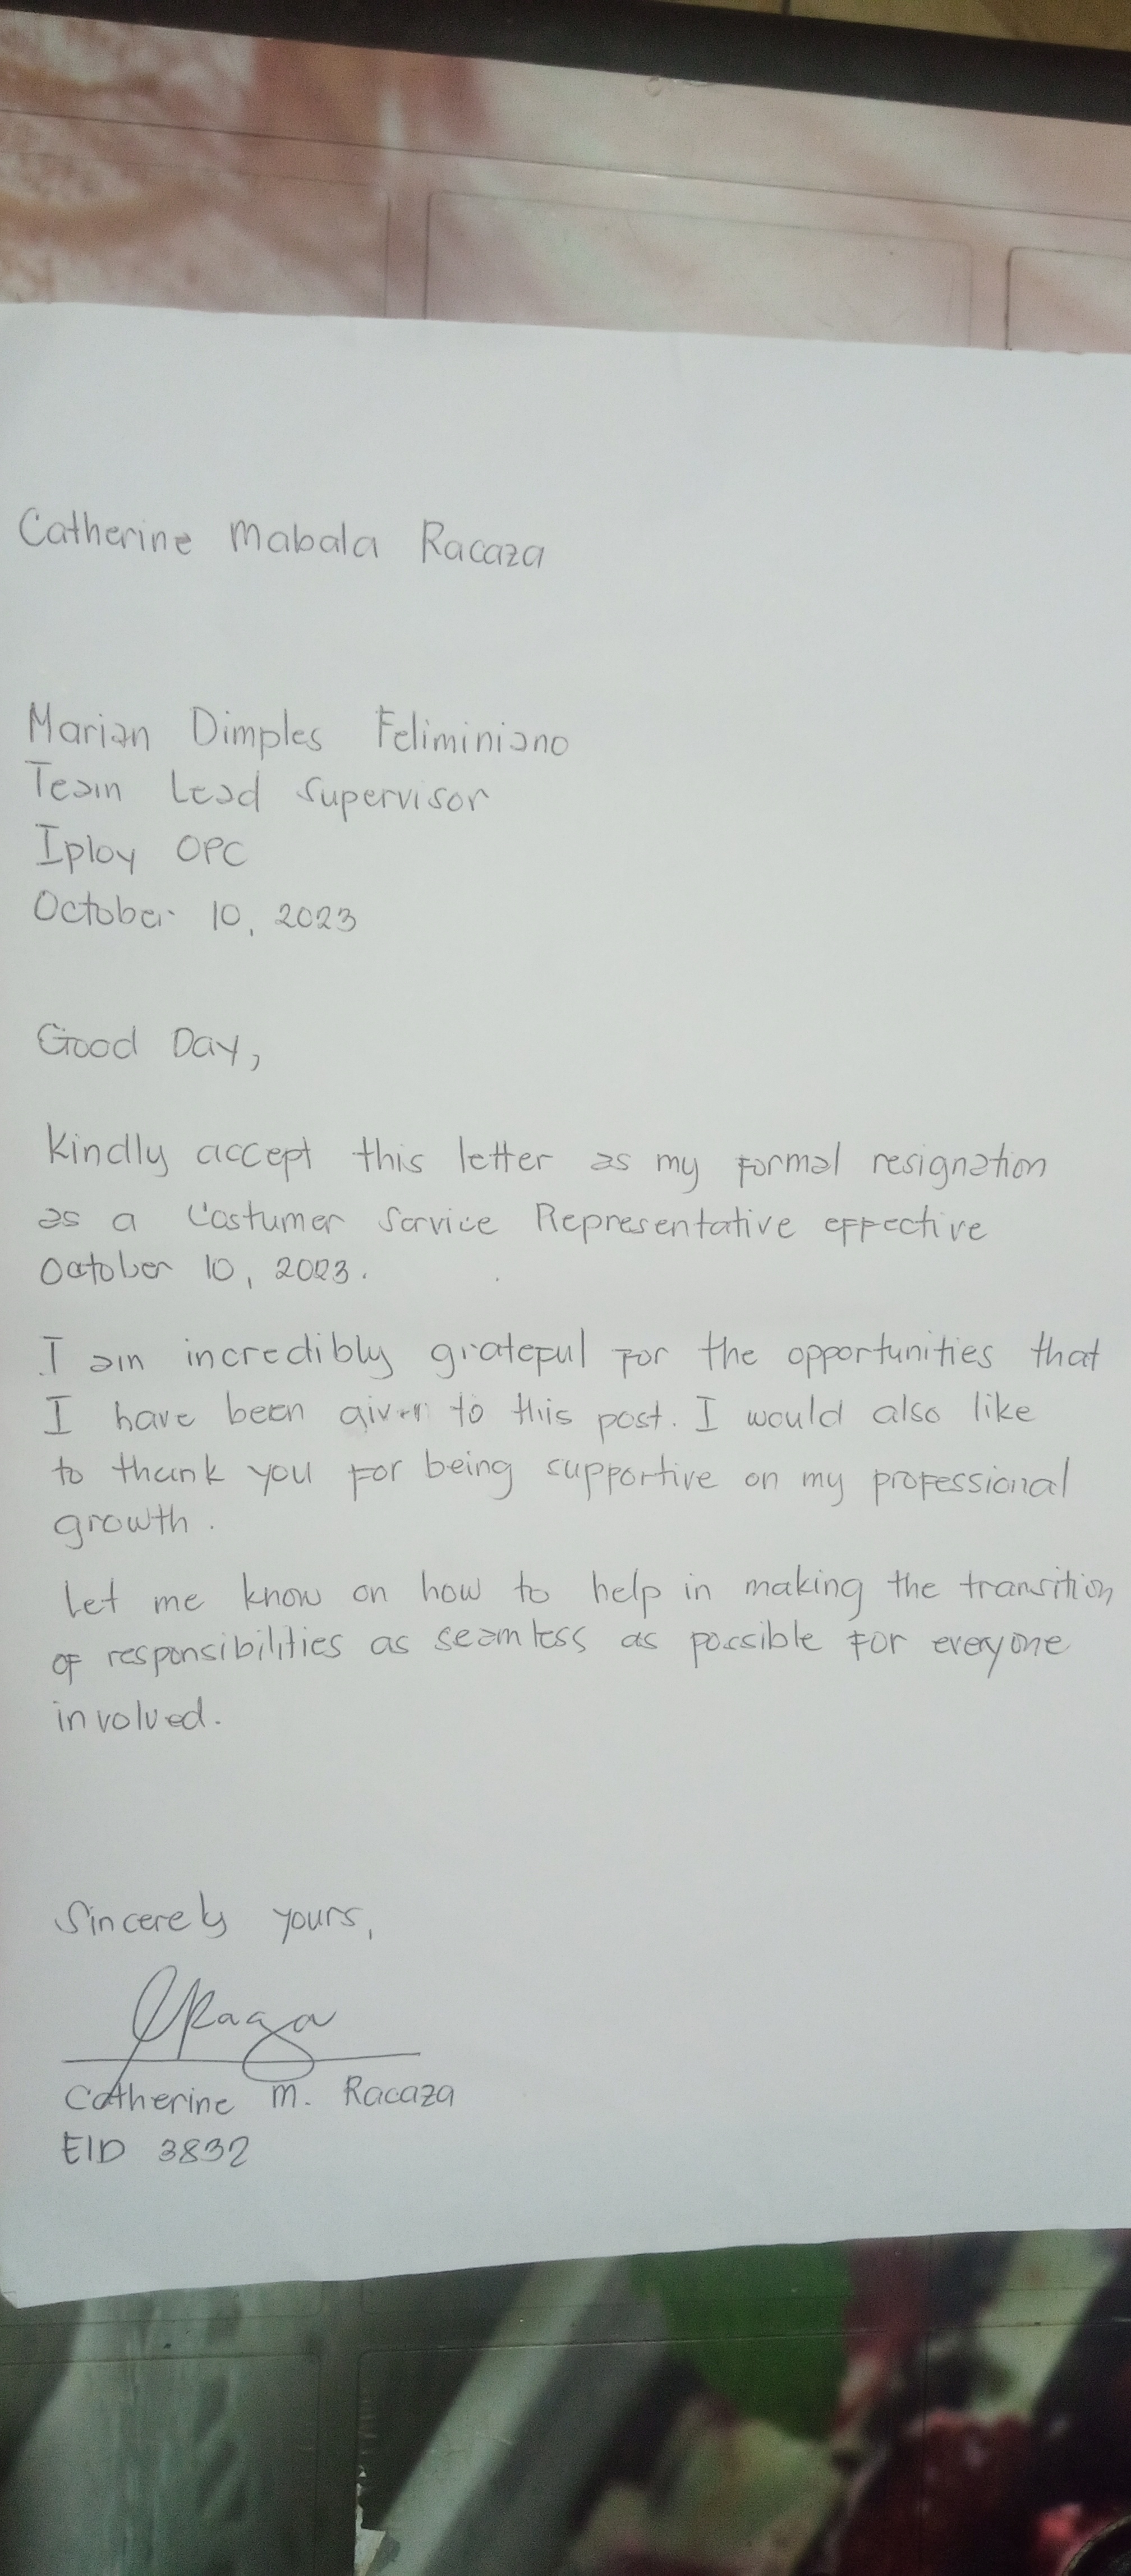 Catherine Mabala Racaza
Marian Dimples Feliminiano
Team Lead Supervisor
Iploy OPC
October 10, 2023
Good Day,
Kindly accept this letter as my formal resignation
as a Costumer Service Representative effective
October 10, 2023.
I am incredibly grateful for the opportunities that
I have been given to this post. I would also like
to thank you for being supportive on my professional
growth.
Let me know on how to help in making the transition
of responsibilities as seamless as possible for everyone
involved.
Sincerely yours,
Catherine M. Racaza
EID 3832